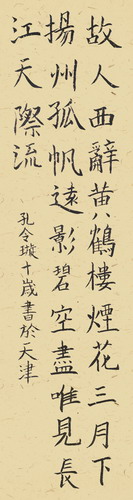 故人西辭黄八鶴樓煙花三月下
揚州孤帆遠影碧空盡唯見長
江天際流
孔令璇十歲書於天津